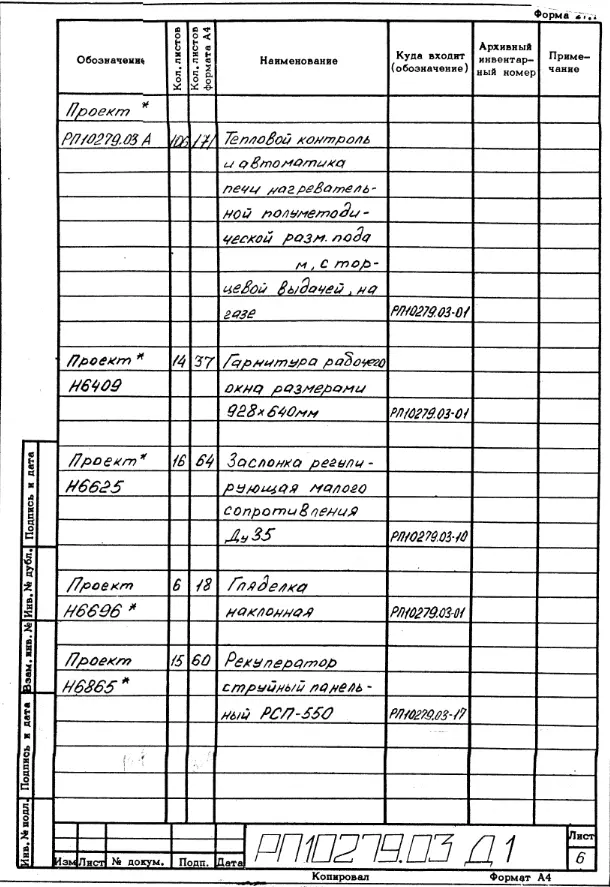 Форма
Обозначение Кол. листов Кол. листов формата А4 Наименование Куда входит (обозначение) Архивный инвентарный номер Примечание
Проект *
РП10279.03 А 106 171 Тепловой контроль
и автоматика
печи нагреватель-
ной полуметоди-
ческой разм. пода
м, с тор-
цевой выдачей, на
газе РП10279.03-01
Проект * 14 37 Гарнитура рабочего
Н6409 окна размерами
928х640мм РП10279.03-01
Проект * 16 64 Заслонка регули-
Н6625 рующая малого
сопротивления
Ду35 РП10279.03-10
Проект 6 18 Гляделка
Н6696 * наклонная РП10279.03-01
Проект 15 60 Рекуператор
Н6865 * струйный панель-
ный РСП-550 РП10279.03-17
Инв. № подл. Подпись и дата Взам. инв. № Инв. № дубл. Подпись и дата
Изм Лист № докум. Подп. Дата
РП10279.03 Д1
Лист
6
Копировал Формат А4